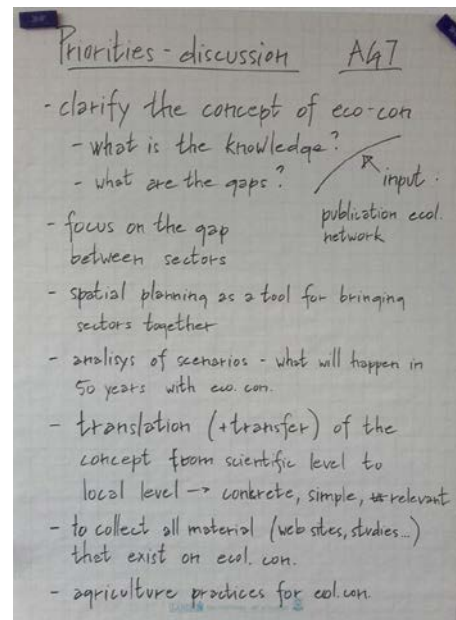 Priorities - discussion AG7
- clarify the concept of eco-con
- what is the knowledge?
- what are the gaps?
input:
publication ecol.
network
- focus on the gap
between sectors
- spatial planning as a tool for bringing
sectors together
- analisys of scenarios - what will happen in
50 years with eco. con.
- translation (+transfer) of the
concept from scientific level to
local level → conkrete, simple, relevant
- to collect all material (web sites, studies...)
that exist on ecol. con.
- agriculture practices for eol.con.